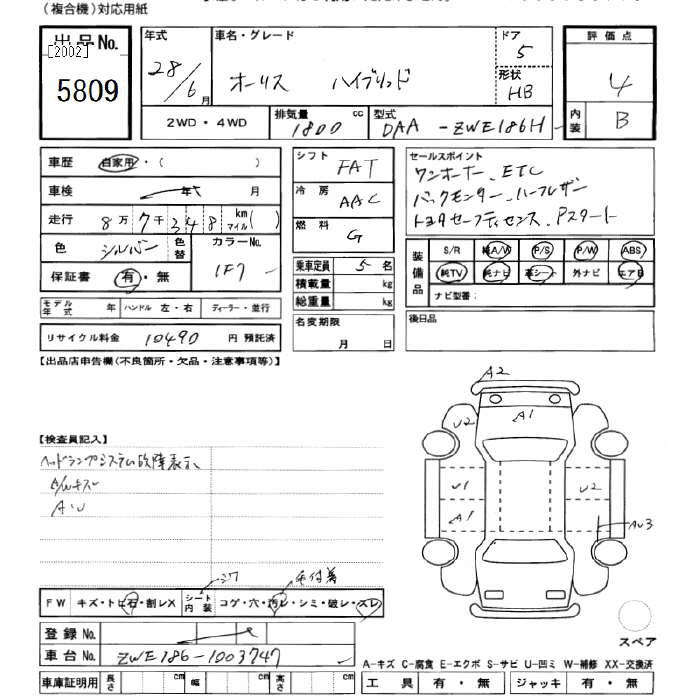 (複合機)対応用紙
出品No.
[2002]
5809
年式
28/6月
車名・グレード
オーリス ハイブリッド
ドア
5
形状
HB
評価点
4
内装
B
2WD・4WD
排気量
1800 cc
型式
DAA-ZWE186H
車歴 自家用・( )
車検 年 月
走行 8万7千348 km マイル( )
色 シルバー 色替 カラーNo. 1F7
保証書 有・無
モデル年式 年 ハンドル 左・右 ディーラー・並行
リサイクル料金 10490 円 預託済
シフト FAT
冷房 AAC
燃料 G
乗車定員 5名
積載量 kg
総重量 kg
名変期限
月 日
セールスポイント
ワンオーナー、ETC
バックモニター、ハーフレザー
トヨタセーフティセンス、Pスタート
装備品
S/R 純A/W P/S P/W ABS
純TV 純ナビ 革シート 外ナビ エアB
ナビ型番:
後日品
【出品店申告欄(不良箇所・欠品・注意事項等)】
【検査員記入】
ヘッドランプシステム故障表示
A/Wキズ
A・U
A2
A1
U2
U1
U2
A1
AU3
FW キズ・ト石・割レX シート内装 コゲ・穴・汚レ・シミ・破レ・スレ
登録No.
車台No. ZWE186-1003747
車庫証明用 長さ cm 幅 cm 高さ cm
スペア
A-キズ C-腐食 E-エクボ S-サビ U-凹ミ W-補修 XX-交換済
工具 有・無 ジャッキ 有・無